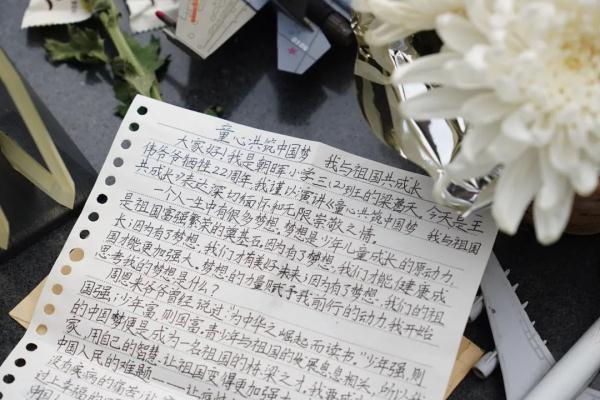 童心洪筑中国梦 我与祖国共成长
大家好!我是朝晖小学三(2)班的梁蕙天。今天是王
伟爷爷牺牲22周年,我谨以演讲《童心洪筑中国梦 我与祖国
共成长》表达深切缅怀和无限崇敬之情。
一个人一生中有很多梦想,梦想是少年儿童成长的原动力,
是祖国富强繁荣的奠基石,因为有了梦想,我们才能健康成
长;因为有了梦想,我们才有美好未来;因为有了梦想,我们的祖
国才能更加强大。梦想的力量赋予我前行的动力,我开始
思考我的梦想是什么?
周恩来爷爷曾经说过:为中华之崛起而读书“少年强,则
国强;少年富,则国富。青少年与祖国的发展息息相关,所以
的中国梦便是成为一名祖国的栋梁之才,我要成
家,用自己的智慧,让祖国变得更加强大
中国人民的难题——让
没有疾病的痛苦
过上幸福的